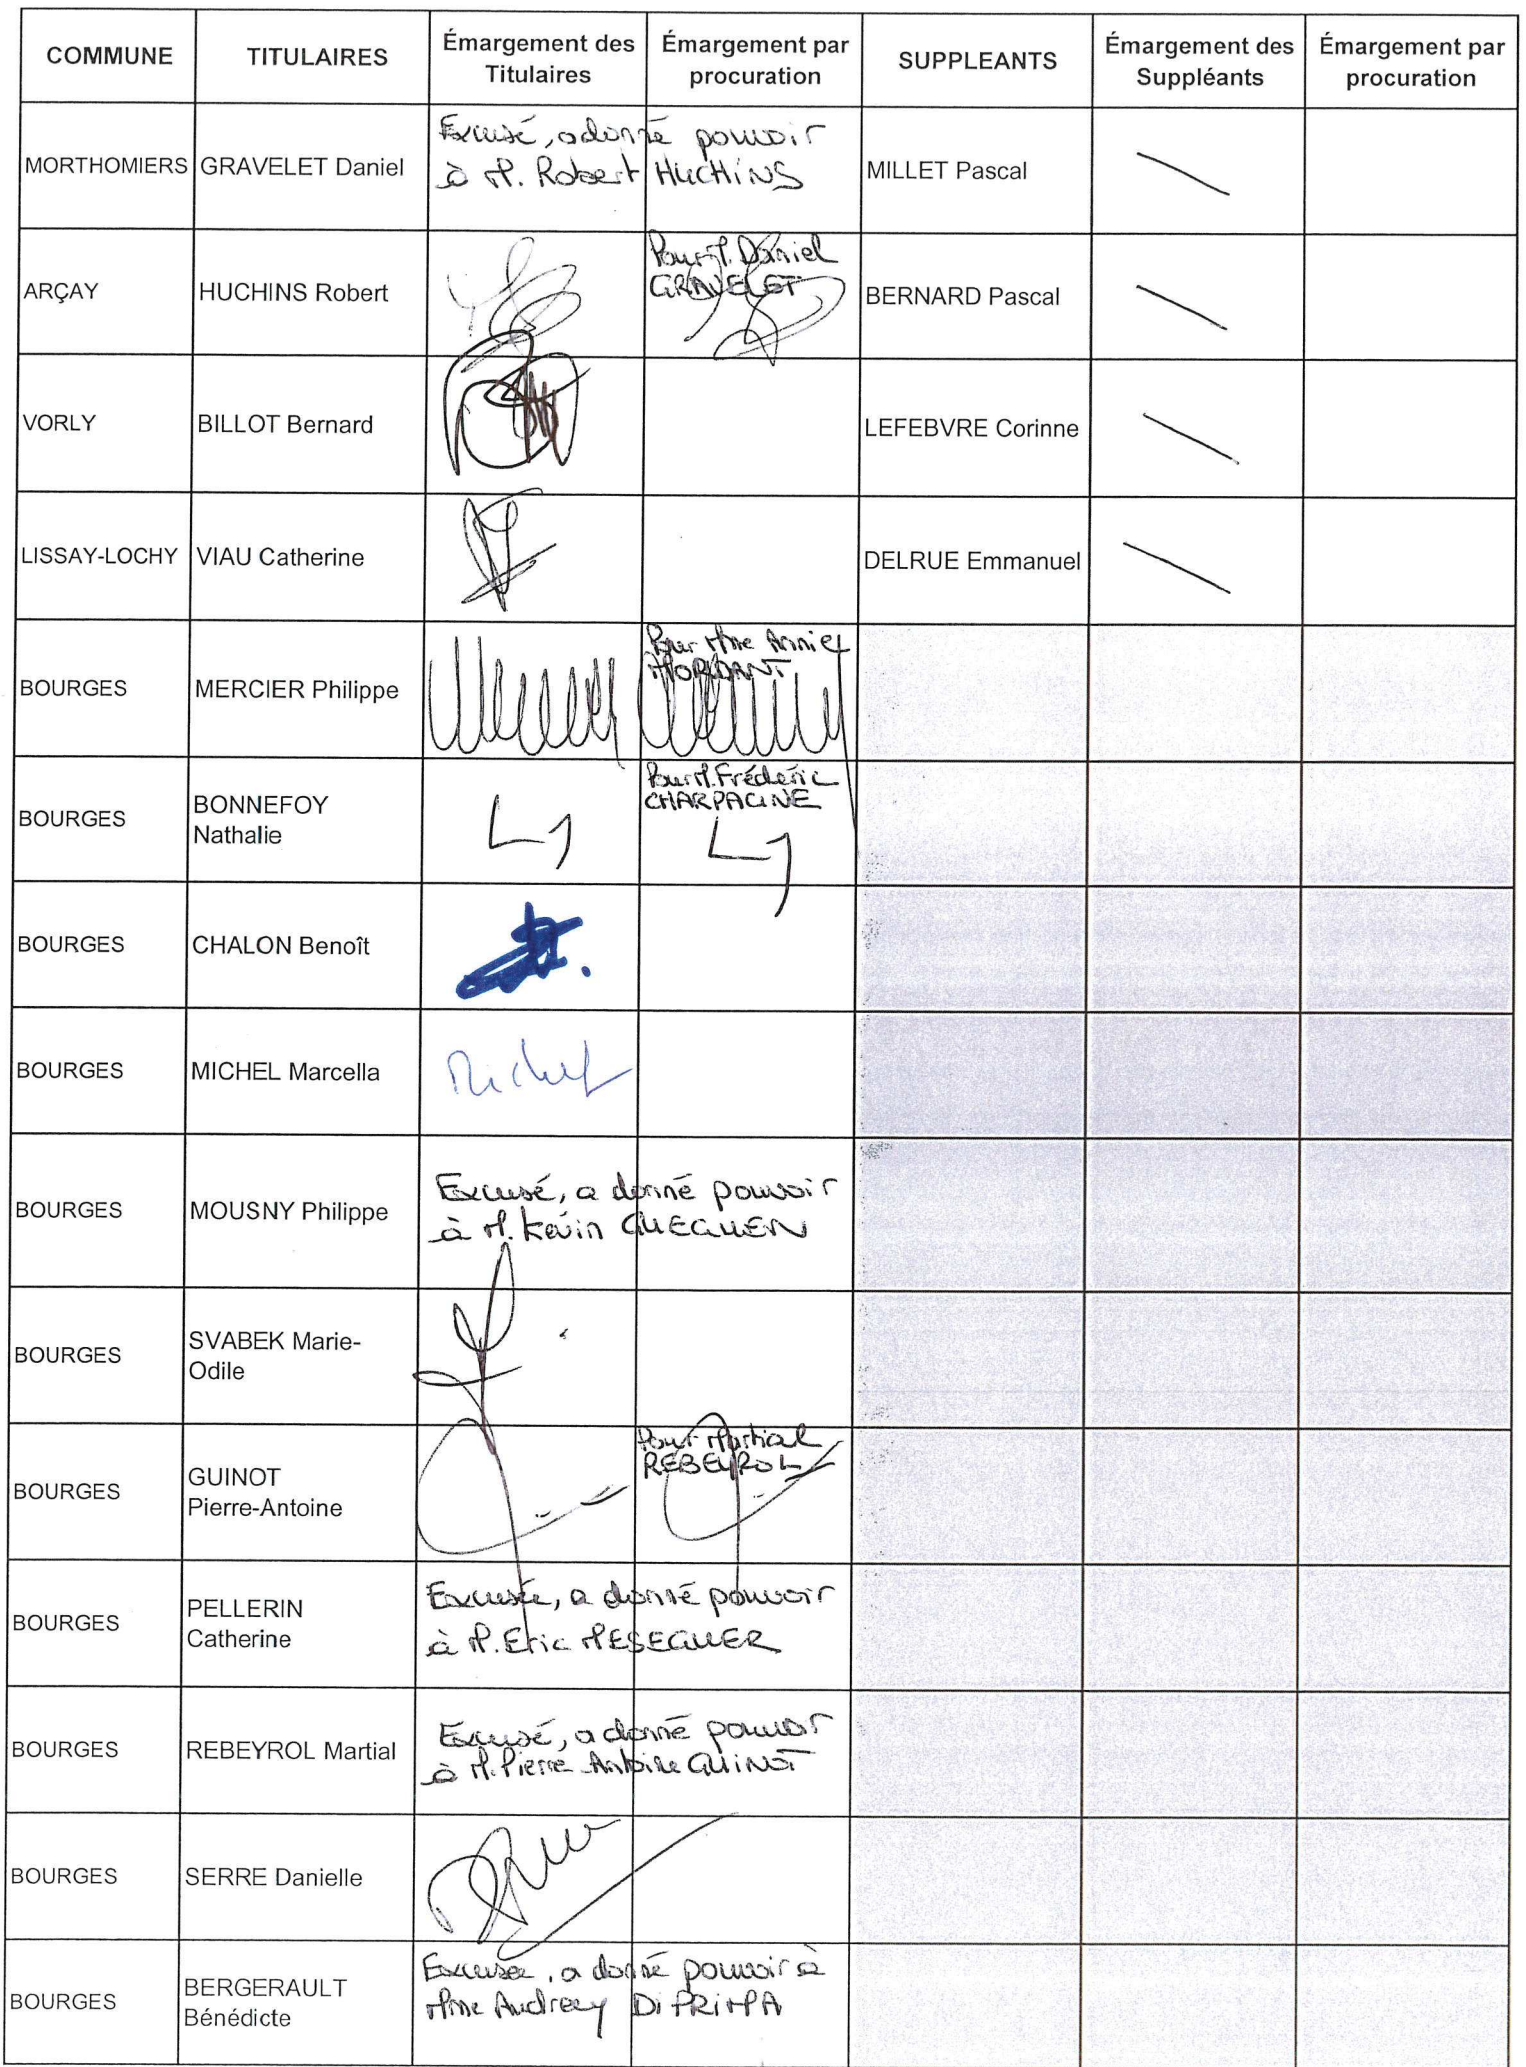 COMMUNE
TITULAIRES
Émargement des
Titulaires
Émargement par
procuration
SUPPLEANTS
Émargement des
Suppléants
Émargement par
procuration
MORTHOMIERS
GRAVELET Daniel
Excusé, a donné pouvoir
à M. Robert HUCHINS
MILLET Pascal
ARÇAY
HUCHINS Robert
Pour M. Daniel
GRAVELET
BERNARD Pascal
VORLY
BILLOT Bernard
LEFEBVRE Corinne
LISSAY-LOCHY
VIAU Catherine
DELRUE Emmanuel
BOURGES
MERCIER Philippe
Pour Mme Annie
MORDANT
BOURGES
BONNEFOY
Nathalie
Pour M. Frédéric
CHARPAGNE
BOURGES
CHALON Benoît
BOURGES
MICHEL Marcella
Michel
BOURGES
MOUSNY Philippe
Excusé, a donné pouvoir
à M. Kévin GUEGUEN
BOURGES
SVABEK Marie-
Odile
BOURGES
GUINOT
Pierre-Antoine
Pour Martial
REBEYROL
BOURGES
PELLERIN
Catherine
Excusée, a donné pouvoir
à M. Eric MESEGUER
BOURGES
REBEYROL Martial
Excusé, a donné pouvoir
à M. Pierre-Antoine GUINOT
BOURGES
SERRE Danielle
BOURGES
BERGERAULT
Bénédicte
Excusée, a donné pouvoir à
Mme Audrey Di PRIMA